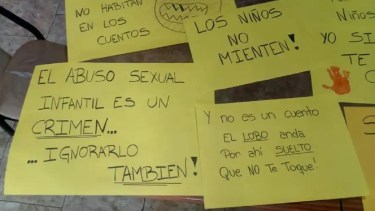 NO HABITAN
EN LOS
CUENTOS
LOS NIÑOS
NO
MIENTEN!
Niños
YO SI
TE
C
EL ABUSO SEXUAL
INFANTIL ES UN
CRIMEN...
...IGNORARLO
TAMBIEN!
Y no es un cuento
EL LOBO anda
Por ahí SUELTO
Que NO Te Toque!
S